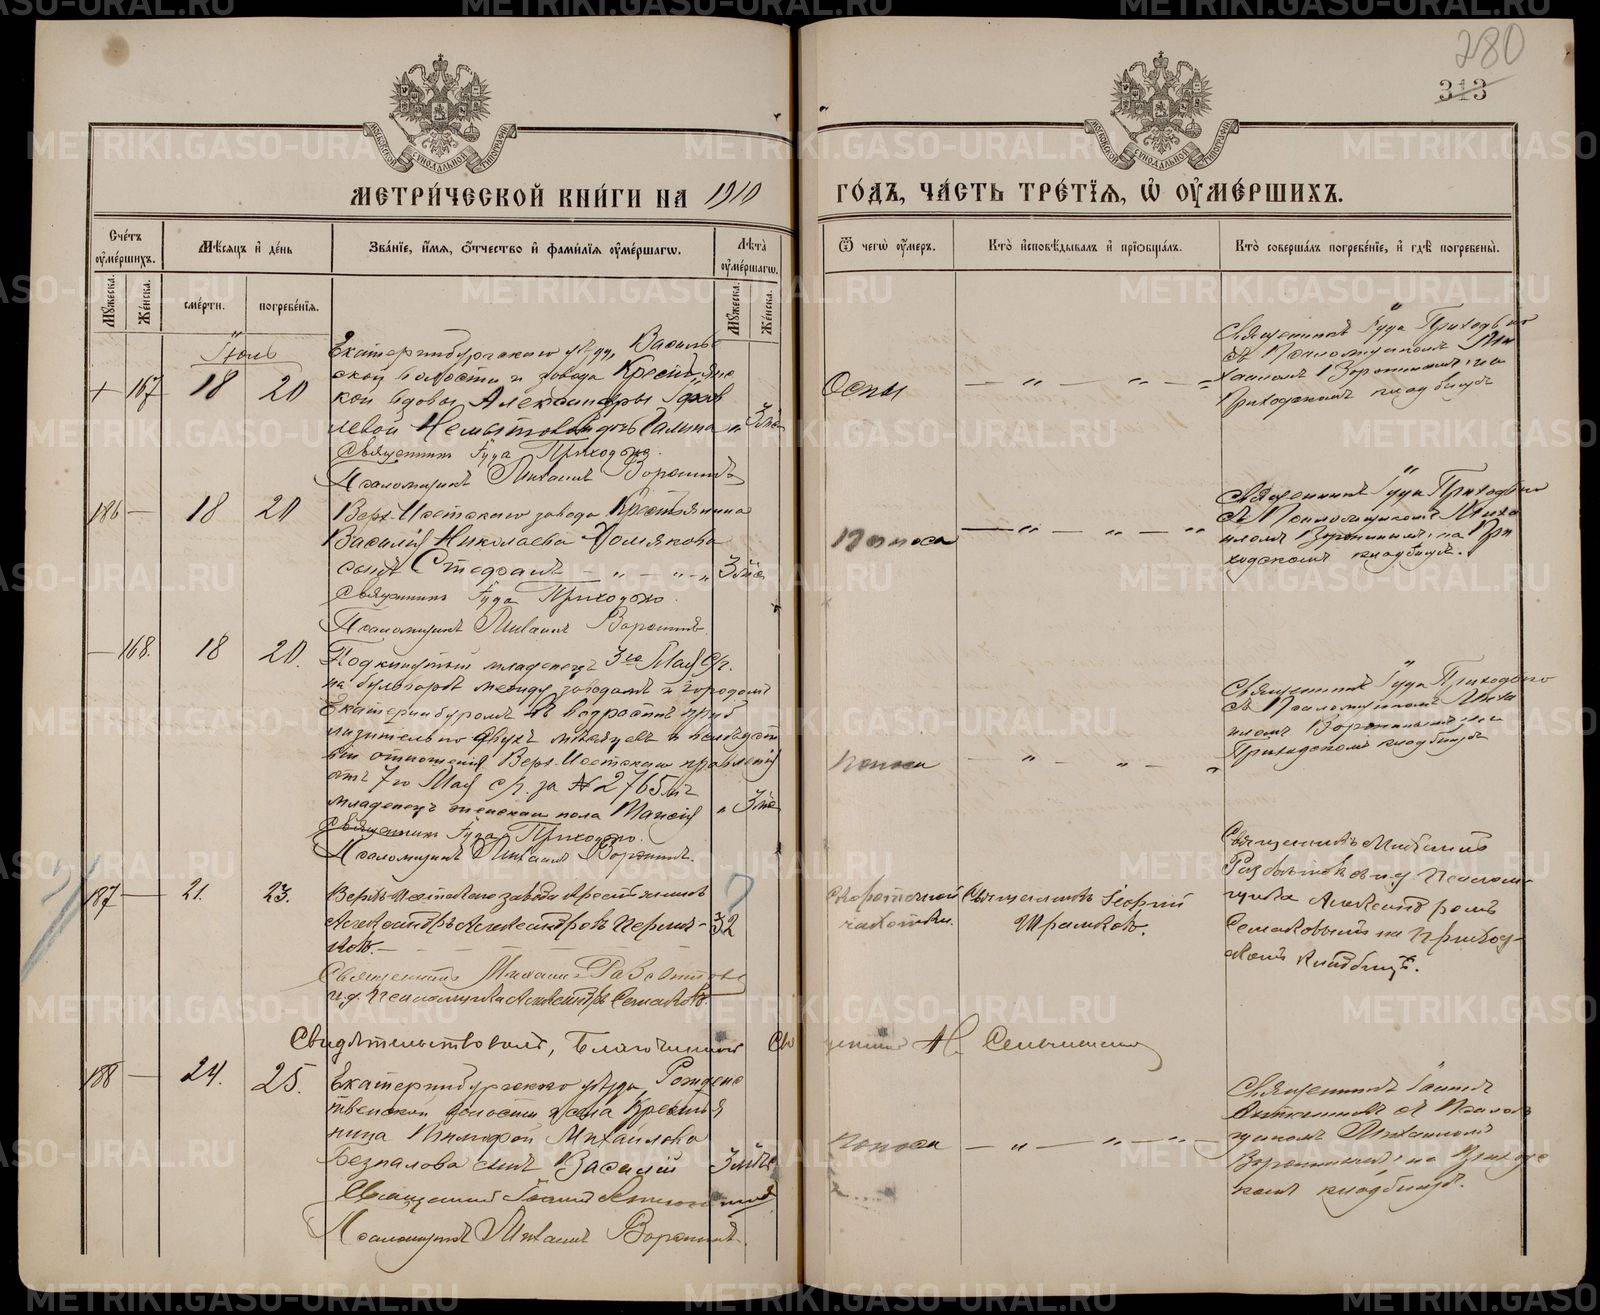 280
313
МОСКОВСКОЙ СУНОДАЛЬНОЙ ТИПОГРАФІИ
МОСКОВСКОЙ СУНОДАЛЬНОЙ ТИПОГРАФІИ
МЕТРИ́ЧЕСКОЙ КНИ́ГИ НА 1910
ГО́ДЪ, ЧА́СТЬ ТРЕ́ТЇЯ, Ѡ ОУМЕ́РШИХЪ.
Сче́тъ оумершихъ.
Мѣсяцъ и де́нь
Зва́нїе, и́мя, Ѻтчество и фами́лїя оумершагѡ.
Лѣта̀ оумершагѡ.
Мужеска.
Же́нска.
сме́рти.
погребе́нїя.
Мужеска.
Же́нска.
Ѿ чегѡ̀ оумеръ.
Кто̀ исповѣдывалъ и прїобща́лъ.
Кто̀ соверша́лъ погребе́нїе, и гдѣ̀ погребены̀.
Іюль
+ 167 18 20
Екатеринбургскаго уѣзда, Василь
ской волости и завода Крестьянс
кой вдовы Александры Яков
левой Немытовой дочь Галина „ 3 мѣс
Священникъ Іуда Приходько.
Псаломщикъ Михаилъ Воронинъ
Оспы
— „ — „ — „
Священникъ Іуда Приходько
съ Псаломщикомъ Ми
хаиломъ Воронинымъ на
Приходскомъ кладбищѣ
186 — 18 20
Верх-Исетскаго завода Крестьянина
Василія Николаева Хомякова
сынъ Стефанъ — „ — „ — „ 3 мѣс
Священникъ Іуда Приходько.
Псаломщикъ Михаилъ Воронинъ.
Поноса
— „ — „ — „
Священникъ Іуда Приходько
съ Псаломщикомъ Миха
иломъ Воронинымъ на При
ходскомъ кладбищѣ.
— 168. 18 20.
Подкинутый младенецъ 3го Мая с/г.
на бульварѣ между заводомъ и городомъ
Екатеринбургомъ въ возрастѣ приб
лизительно двухъ мѣсяцевъ и вслѣдст
віи отношенія Верх-Исетскаго правленія
отъ 7го Мая с/г. за № 2765мъ
младенецъ женскаго пола Таисія „ 3 мѣс
Священникъ Іуда Приходько.
Псаломщикъ Михаилъ Воронинъ.
Поноса
— „ — „ — „
Священникъ Іуда Приходько
съ Псаломщикомъ Миха
иломъ Воронинымъ на
Приходскомъ кладбищѣ
187 — 21. 23.
Верхъ-Исетскаго завода крестьянинъ
Александръ Александровъ Пермя-
ковъ. — 32
Священникъ Михаилъ
и.д. Псаломщика Александръ Семаковъ
Скоротечной
чахотки.
Священникъ Георгій
Священникъ Михаилъ
и.д. Псалом-
щика Александромъ
Семаковымъ на приход-
скомъ кладбищѣ.
Свидѣтельствовалъ, Благочинный Св
ященникъ Н.
188 — 24. 25.
Екатеринбургскаго уѣзда, Рождест
твенской волости и села Крестья
нина Тимофея Михайлова
Безпалова сынъ Василій 3 мѣс
Священникъ Іоаннъ
Псаломщикъ Михаилъ Воронинъ.
Поноса
— „ — „ — „
Священникъ Іоаннъ
съ Псалом
щикомъ Михаиломъ
Воронинымъ на Приходс
комъ кладбищѣ.